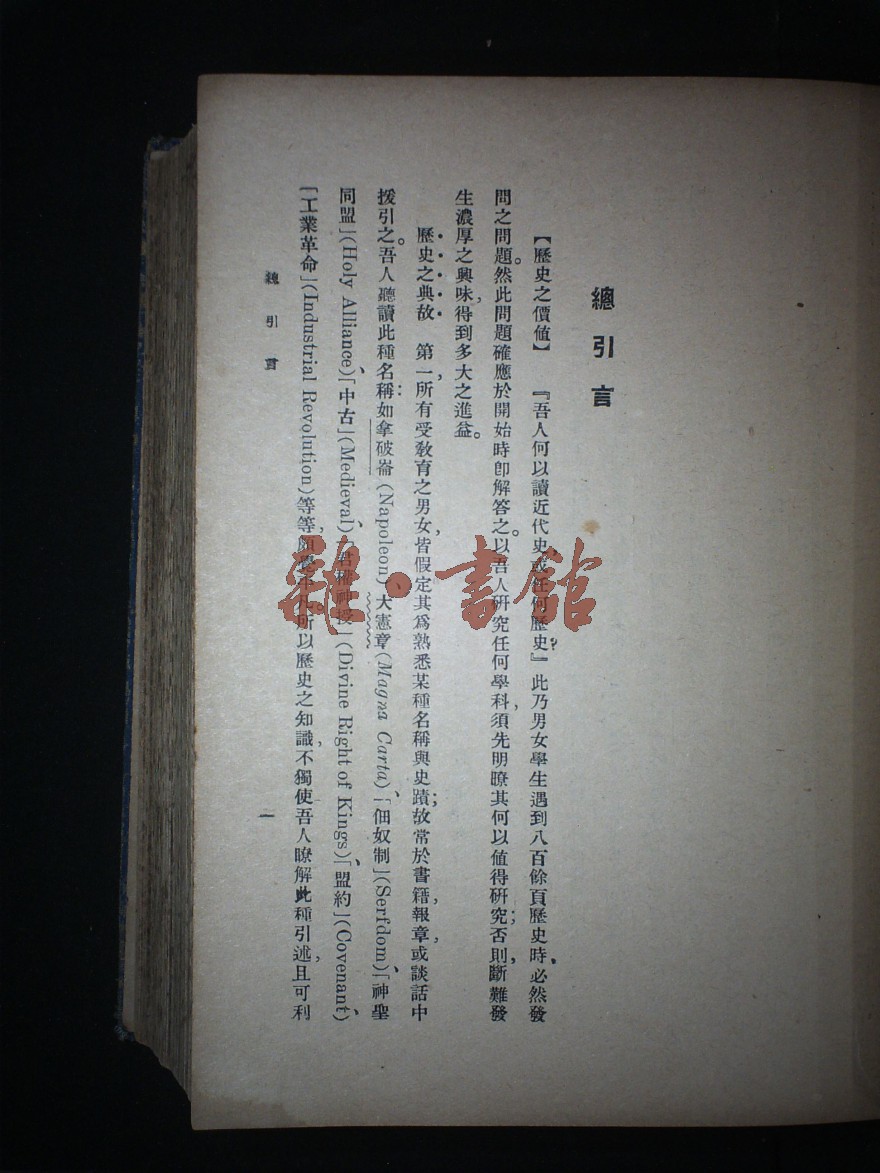 總引言
【歷史之價値】 『吾人何以讀近代史，或任何歷史？』此乃男女學生遇到八百餘頁歷史時，必然發
問之問題。然此問題確應於開始時卽解答之。以吾人硏究任何學科，須先明瞭其何以値得硏究；否則，斷難發
生濃厚之興味，得到多大之進益。
歷史之典故 第一，所有受敎育之男女，皆假定其爲熟悉某種名稱與史蹟；故常於書籍，報章，或談話中
援引之。吾人聽讀此種名稱：如拿破崙(Napoleon)、大憲章(Magna Carta)、「佃奴制」(Serfdom)、「神聖
同盟」(Holy Alliance)、「中古」(Medieval)、「君權神授」(Divine Right of Kings)、「盟約」(Covenant)、
「工業革命」(Industrial Revolution)等等，所以歷史之知識，不獨使吾人瞭解此種引述，且可利
總引言
一
雜·書館